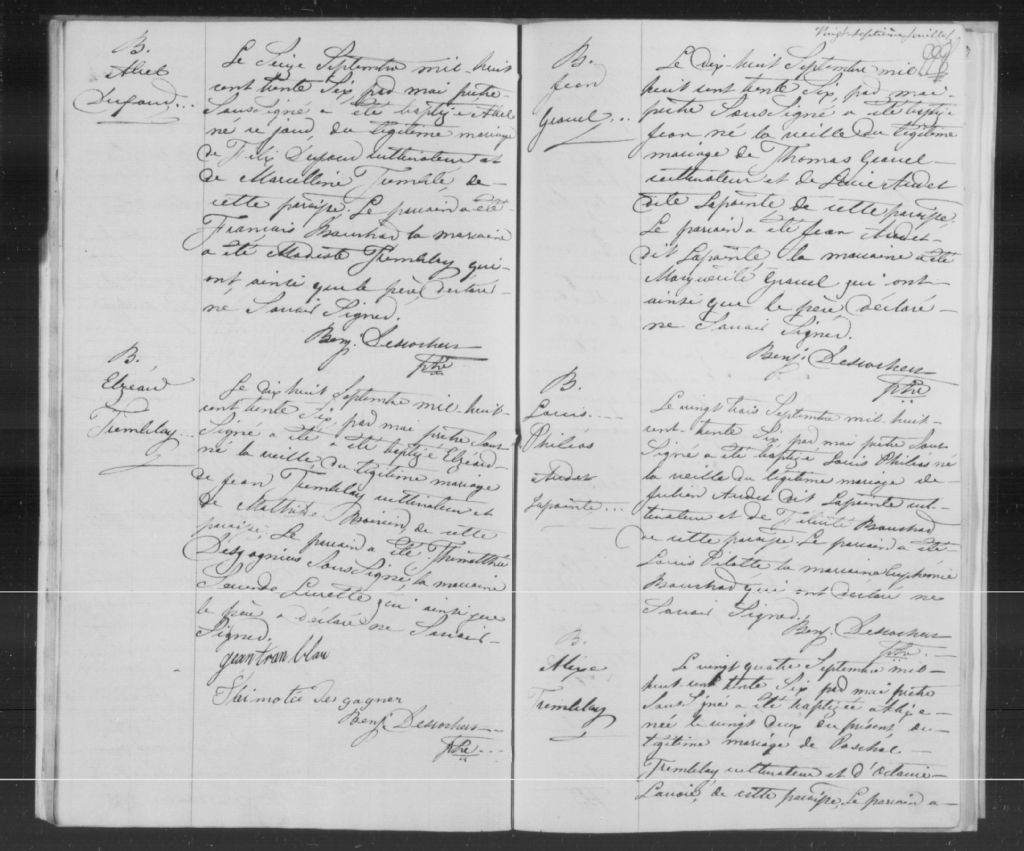 B.
Abel
Dufour...
Le Seize Septembre mil-huit
cent trente Six, par moi prêtre
Soussigné a été baptizé Abel
né ce jour, du légitime mariage
de Félix Dufour cultivateur et
de Marcelline Tremblé de
cette paroisse. Le parrain a été
Francois Bouchard la marraine
a été Modeste Tremblay qui
ont ainsi que le père, déclaré
ne Savoir Signer.
Benj. Desrochers
ptre
B.
Elzéar
Tremblay...
Le dix huit Septembre mil-huit
cent trente Six, par moi prêtre Sous-
Signé a été a été baptizé Elzéar
né la veille du légitime mariage
de Jean Tremblay cultivateur et
de Mathilde de cette
paroise. Le parrain a été Thimothée
Desgagniers Soussigné, la marraine
qui ainsi que
le père a déclaré ne Savoir
Signer.
jean tran blai
Thimoté des gagner
Benj Desrochers
ptre...
Vingt-septième feuillet
B.
Jean
Gravel...
Le Dix-huit Septembre mil
huit cent trente Six, par moi
prêtre Sousigné a été baptizé
Jean né la veille du légitime
mariage de Thomas Gravel
cultivateur et de Audet
dite Lapointe de cette paroisse
Le parrain a été Jean Audet
dit Lapointe, la marraine a été
Marguerite Gravel qui ont
ainsi que le père déclaré
ne Savoir Signer.
Benj. Desrochers
ptre
B.
Louis
Philias
Audet
Lapointe...
Le vingt trois Septembre mil-huit
cent-trente Six, par moi prêtre Sous
Signé a été baptizé Louis Philias né
la veille du légitime mariage de
Julien Audet dit Lapointe cul-
tivateur et de Félicité Bouchard
de cette paroisse. Le parrain a été
Louis Pilotte la marraine Euphémie
Bouchard qui ont déclaré ne
Savoir Signer.
Benj. Desrochers
ptre.
B.
Alixe
Tremblay
Le vingt quatre Septembre mil
huit cent trente Six par moi prêtre
Sous Signé a été baptizée Alixe
née le vingt deux du présent, du
légitime mariage de Paschal
Tremblay cultivateur et d'Octavie
Lavoie, de cette paroisse. Le parrain a